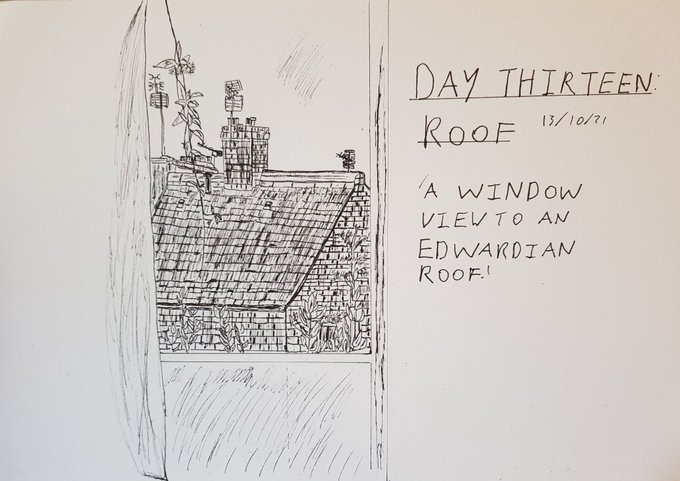 DAY THIRTEEN:
ROOF 13/10/21
'A WINDOW
VIEW TO AN
EDWARDIAN
ROOF.'